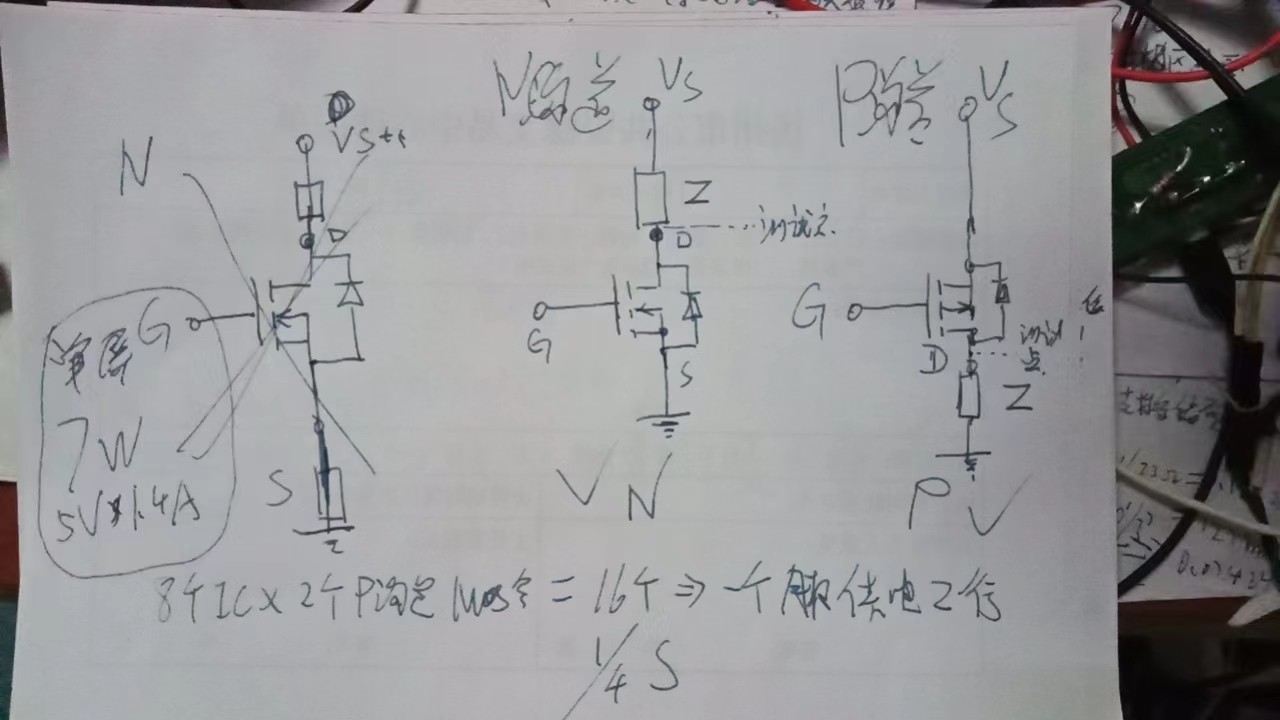 N沟道
Vs
P沟道
VS
D
VS++
N
D
Z
D
测试点
G
G
G
S
D
测试点
Z
单屏
7W
5V×1.4A
S
V N
P V
8个IC×2个P沟道Mos管=16个⇒一个服供电2行
1/4 S